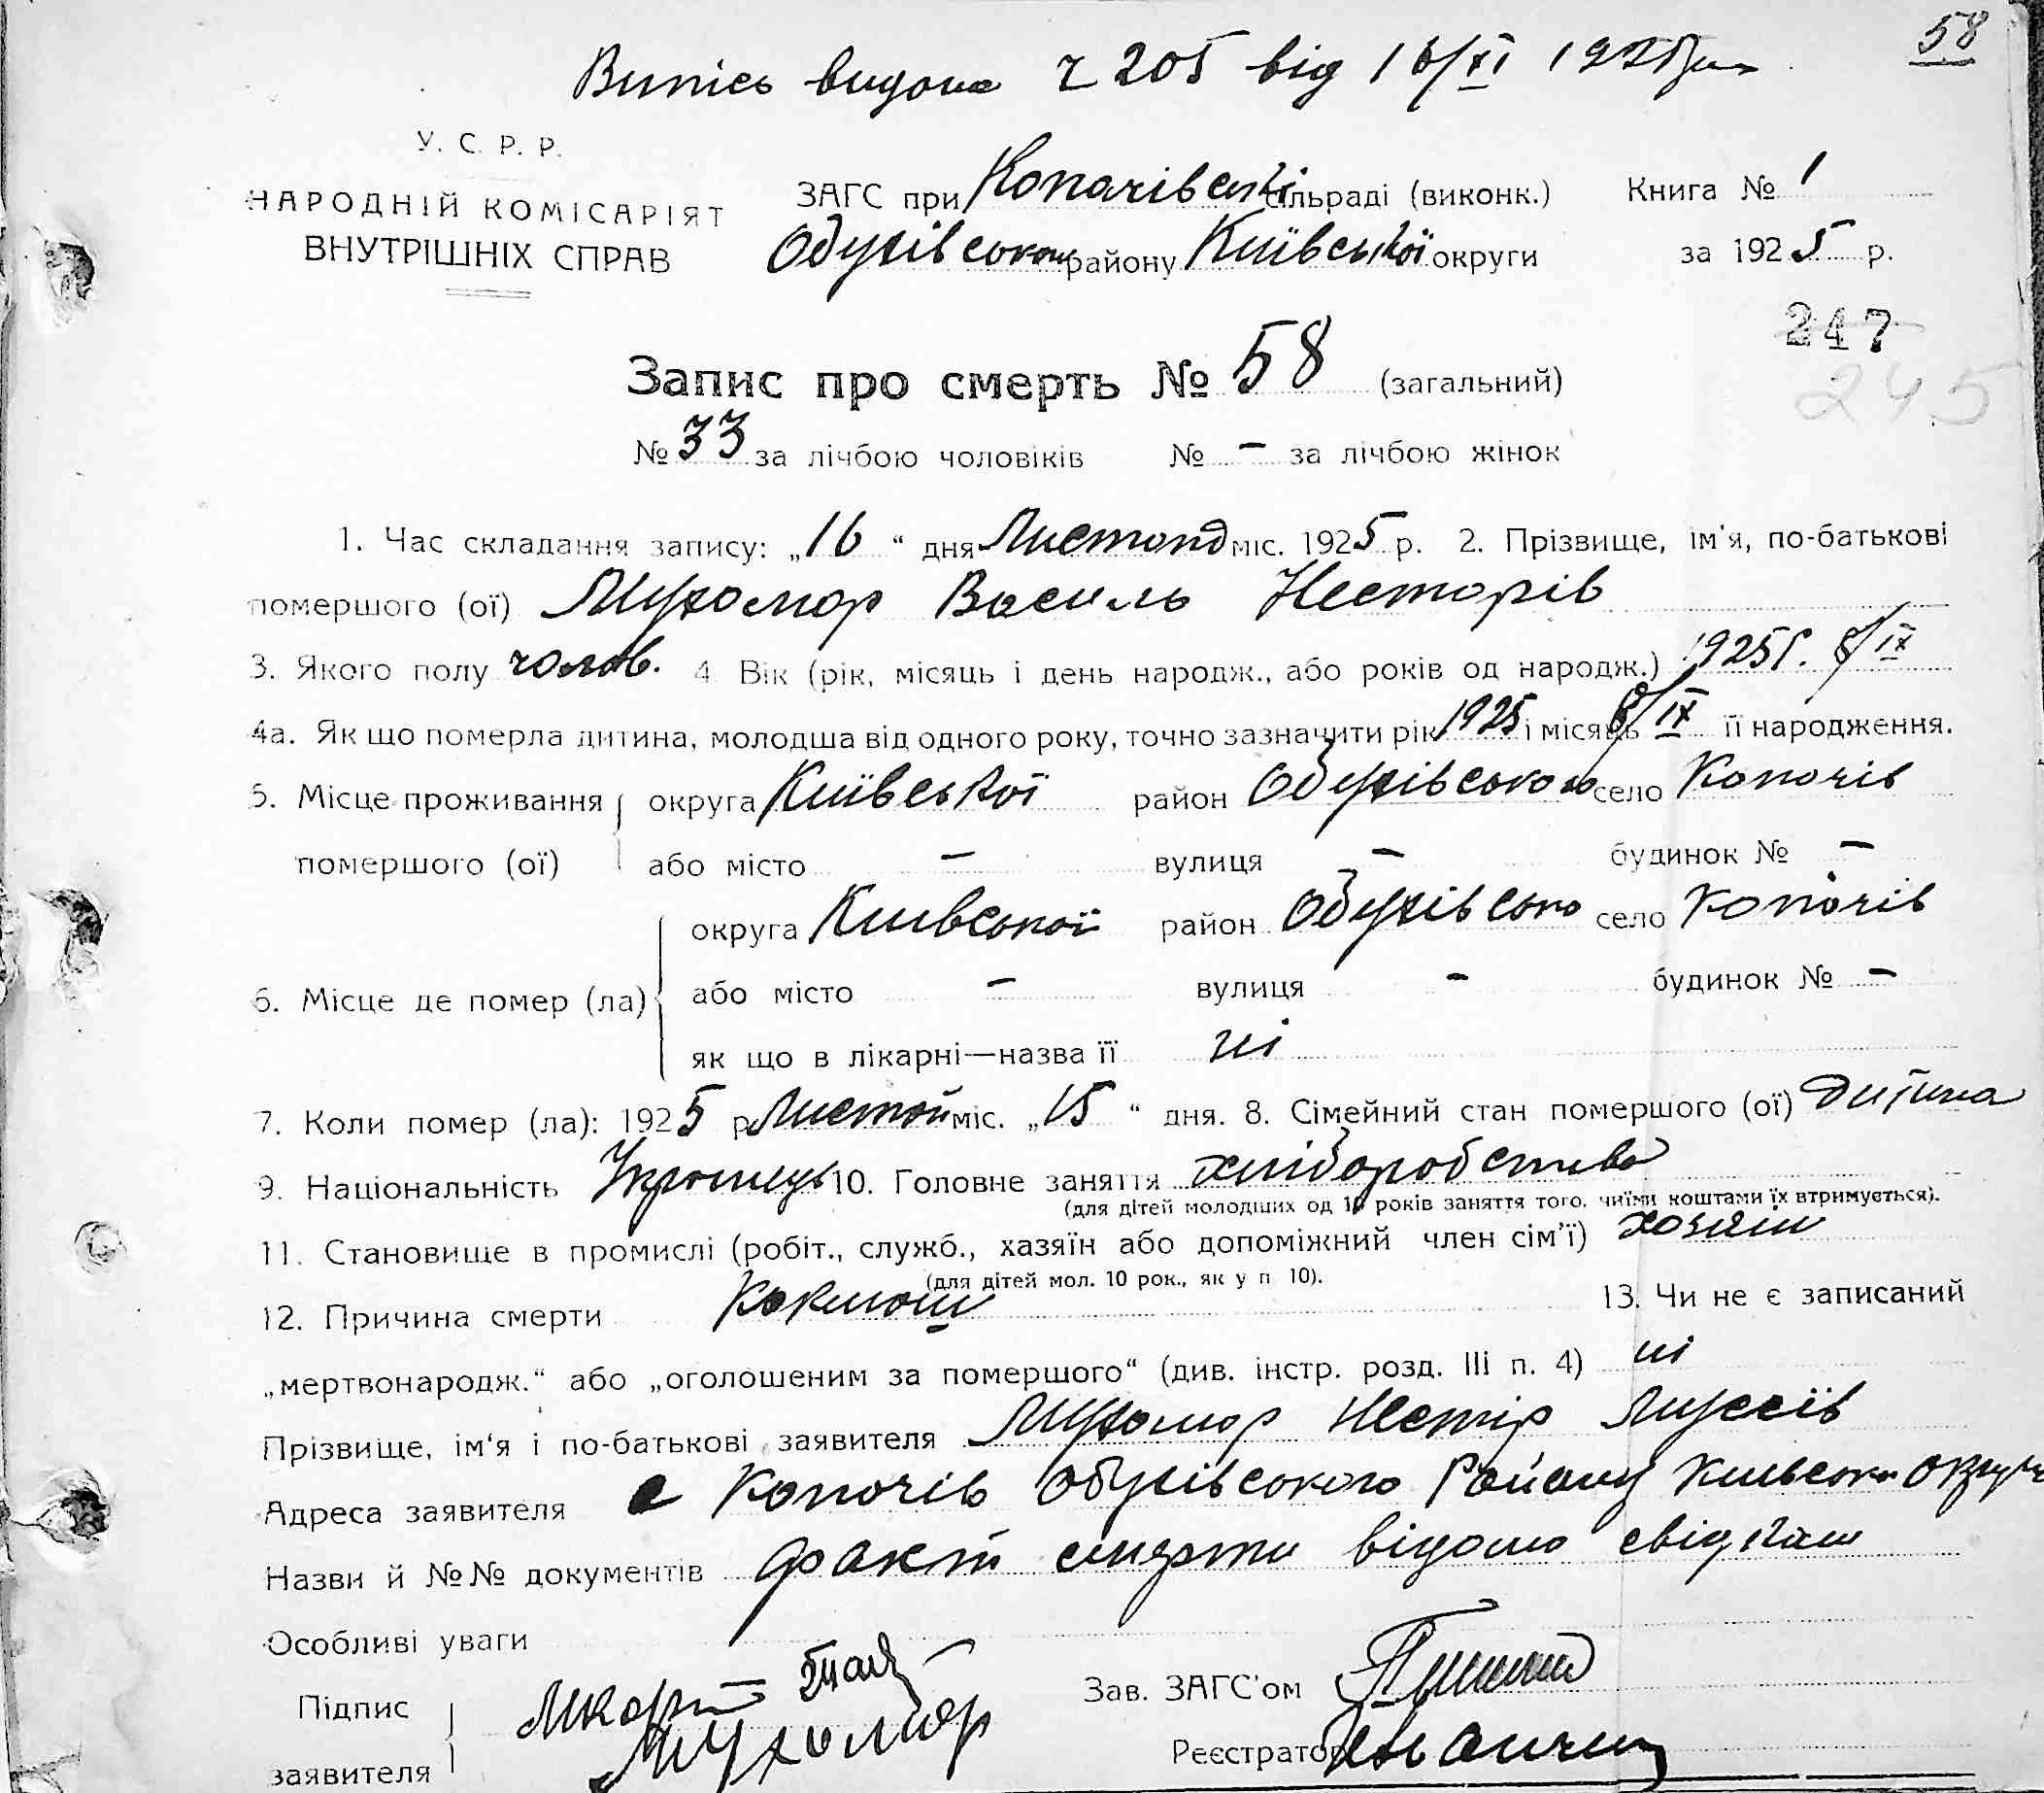 58
Випісь видана ч 205 від 16/XI 1925 р
У. С. Р. Р.
НАРОДНІЙ КОМІСАРІЯТ
ВНУТРІШНІХ СПРАВ
ЗАГС при Копачівській сільраді (виконк.) Книга № 1
Обухівського району Київської округи за 1925 р.
247
245
Запис про смерть № 58 (загальний)
№ 33 за лічбою чоловіків № – за лічбою жінок
1. Час складання запису: „16“ дня Листопад міс. 1925 р. 2. Прізвище, ім'я, по-батькові
помершого (ої) Мухомор Василь Несторів
3. Якого полу чолов. 4 Вік (рік, місяць і день народж., або років од народж.) 1925 р. 8/IX
4а. Як що померла дитина, молодша від одного року, точно зазначити рік 1925 і місяць 8/IX її народження.
5. Місце проживання округа Київської район Обухівського село Копачів
помершого (ої) або місто – вулиця – будинок № –
округа Київської район Обухівсько село Копачів
6. Місце де помер (ла) або місто – вулиця – будинок № –
як що в лікарні—назва її ні
7. Коли помер (ла): 1925 р Листоп міс. „15“ дня. 8. Сімейний стан помершого (ої) Дитина
9. Національність Українець 10. Головне заняття хліборобство
(для дітей молодших од 10 років заняття того, чиїми коштами їх втримується).
11. Становище в промислі (робіт., служб., хазяїн або допоміжний член сім'ї) хозяїн
(для дітей мол. 10 рок., як у п 10).
12. Причина смерти Коклюш 13. Чи не є записаний
„мертвонародж.“ або „оголошеним за помершого“ (див. інстр. розд. III п. 4) ні
Прізвище, ім'я і по-батькові заявителя Мухомор Нестір Мусіїв
Адреса заявителя с Копачів Обухівського Району Київсько округи
Назви й №№ документів факт смерти відомо свідкам
Особливі уваги
Підпис Зав. ЗАГС'ом
заявителя Мухомор Реєстратор